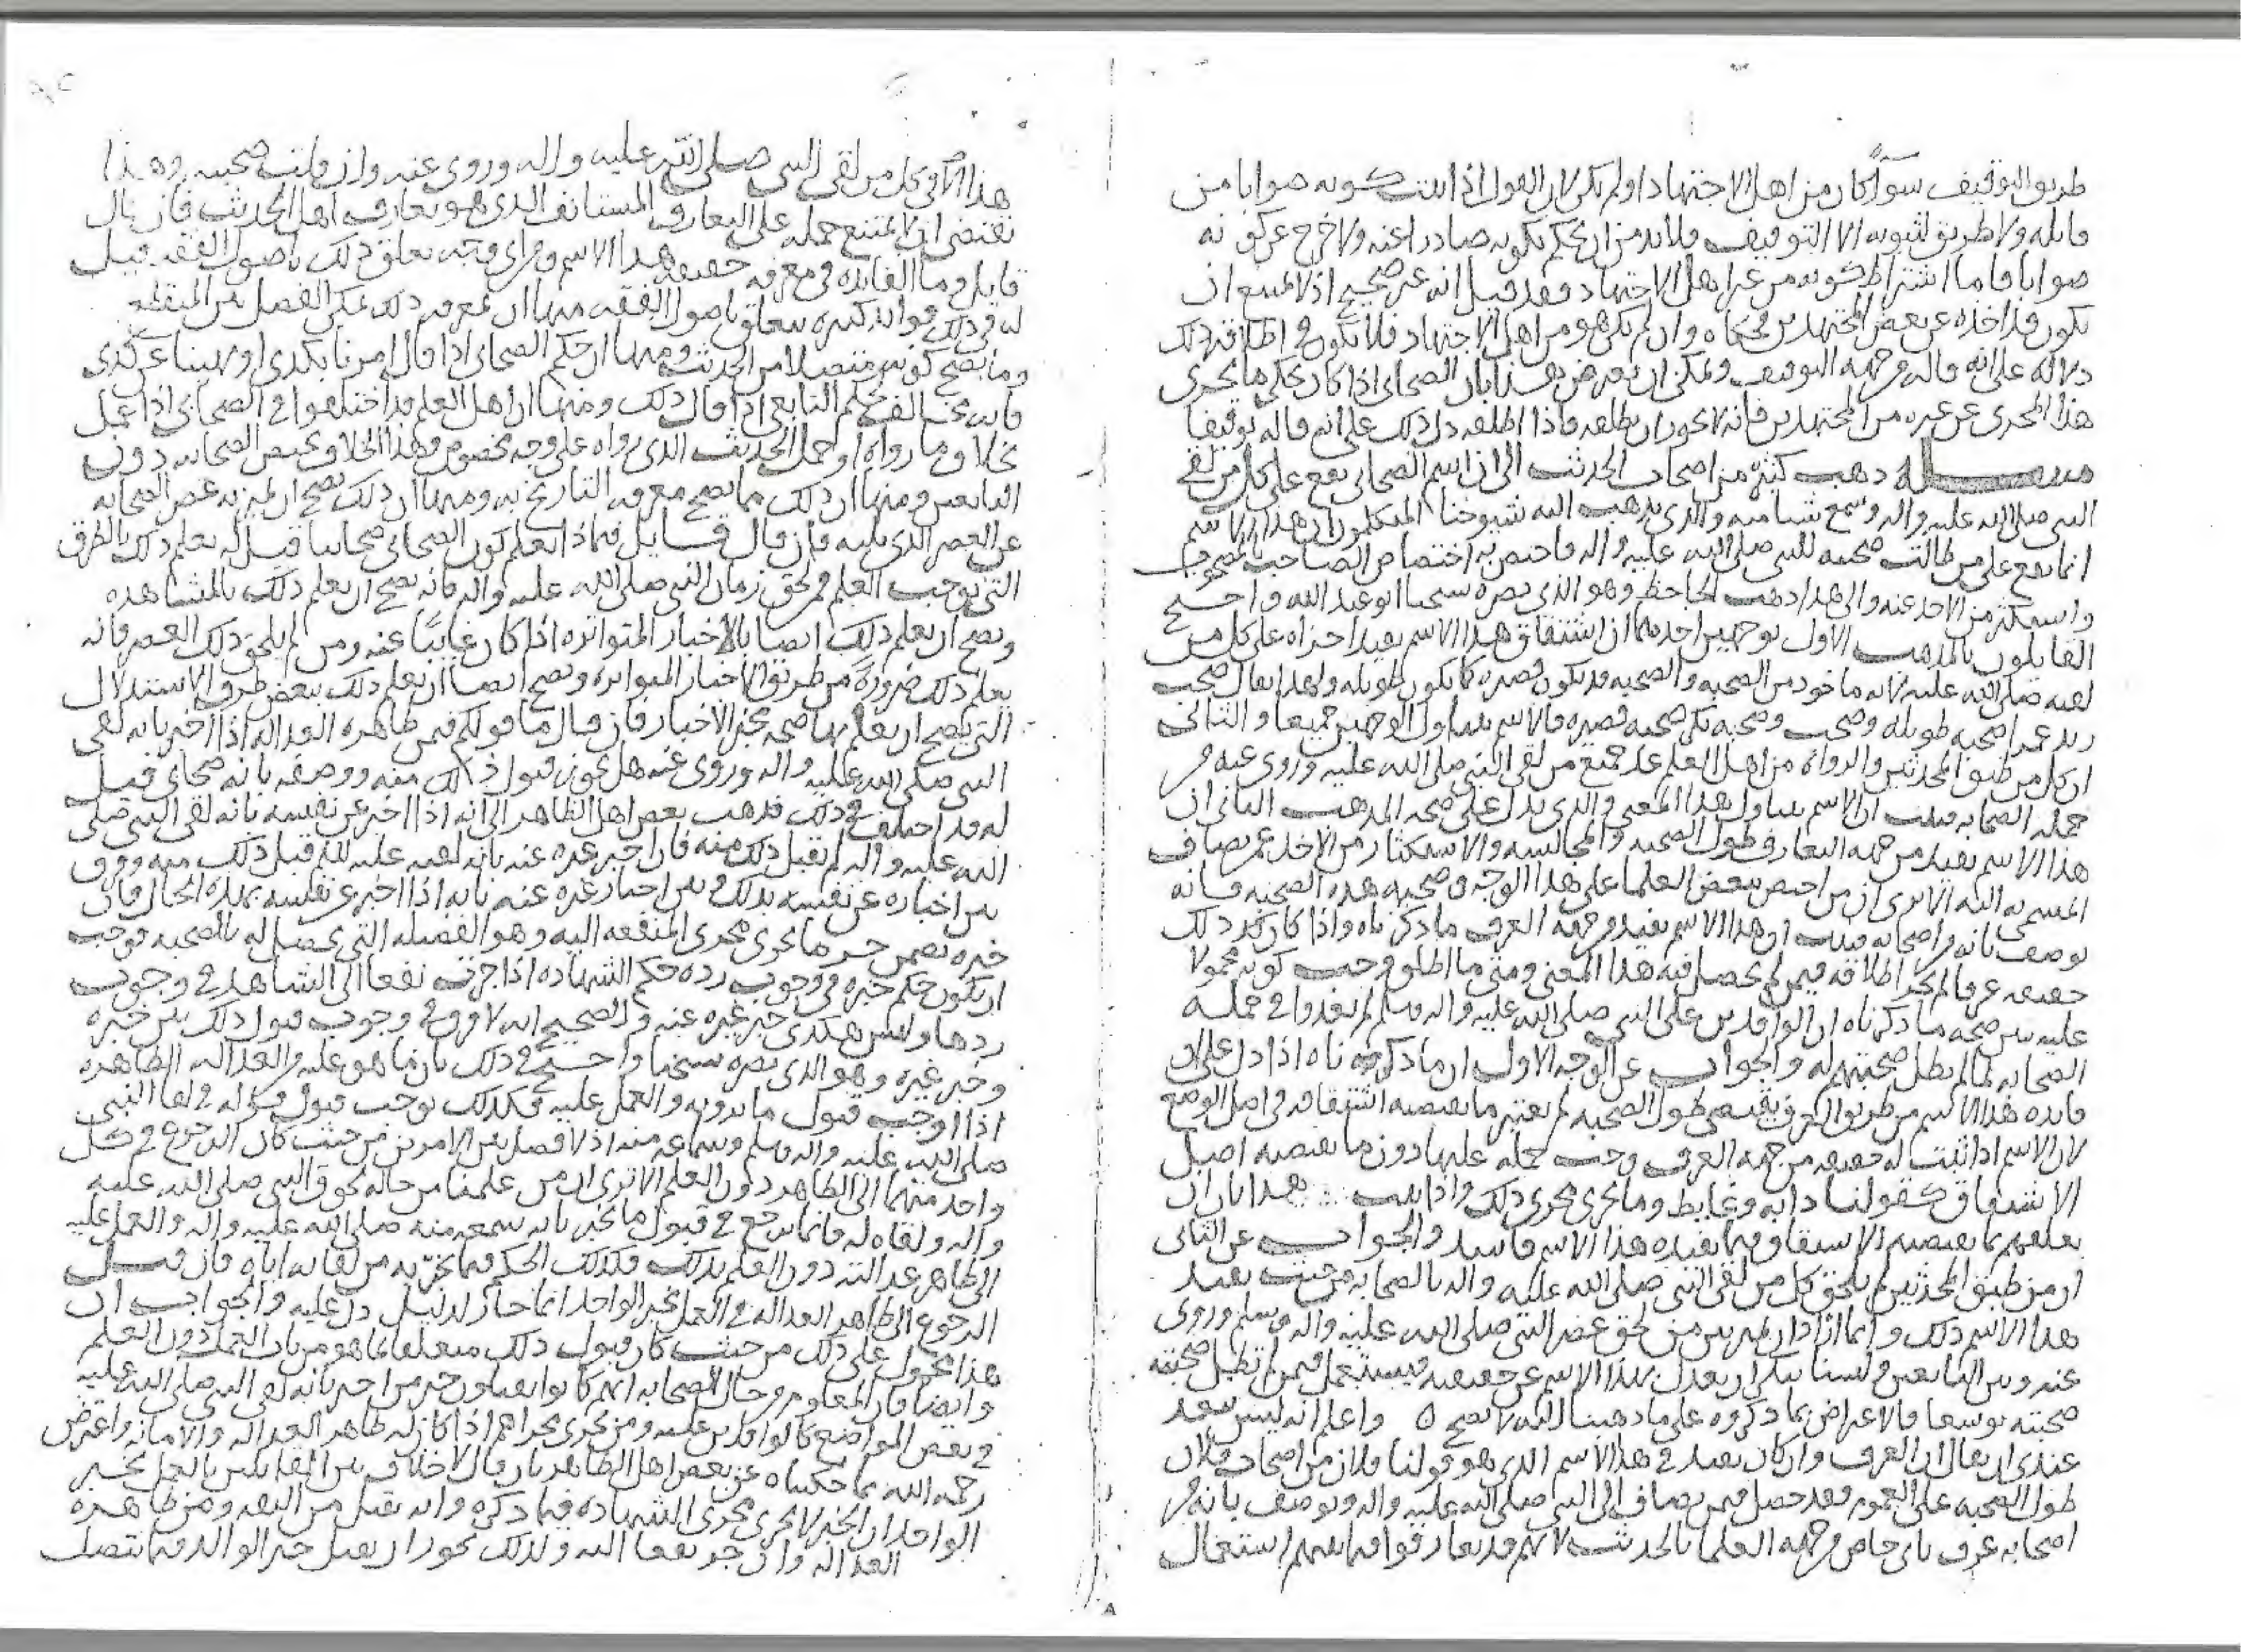 طريق التوقيف سواء كان من اهل الاجتهاد او لم يكن لان القول اذا ثبت كونه صوابا من
قائله ولا طريق لثبوته الا التوقيف فلا بد من ان يحكم بكونه صادرا عنه ولا خرج عن كونه
صوابا فاما اشتراط كونه من غير اهل الاجتهاد فقد قيل انه غير صحيح اذ لا يمتنع ان
يكون قد اخذه عن بعض المجتهدين فحكاه وان لم يكن هو من اهل الاجتهاد فلا يكون في اطلاقه ذلك
دلالة على انه قاله من جهة التوقيف ويمكن ان يعترض هذا بان الصحابي اذا كان يحكي ما يجري
هذا المجرى عن غيره من المجتهدين فانه لا يجوز ان يطلقه فاذا اطلقه دل ذلك على انه قاله توقيفا
مسئلة ذهب كثير من اصحاب الحديث الى ان اسم الصحابي يقع على كل من لقي
النبي صلى الله عليه واله وسمع شيا منه والذي يذهب اليه شيوخنا المتكلمون ان هذا الاسم
انما يقع على من طالت صحبته للنبي صلى الله عليه واله فاختص به اختصاص الصاحب بالمصحوب
واستكثر من الاخذ عنه والى هذا ذهب الجاحظ وهو الذي نصره شيخنا ابو عبد الله واحتج
القايلون بالمذهب الاول بوجهين احدهما ان اشتقاق هذا الاسم يفيد اجراه على كل من
لقيه صلى الله عليه لانه ماخوذ من الصحبة والصحبة قد تكون قصيرة كما تكون طويلة ولهذا يقال صحب
زيد عمرا صحبة طويلة وصحب وصحبه تكن صحبة قصيرة فالاسم يتناول الوجهين جميعا والثاني
ان كل من طبق المحدثين والرواة من اهل العلم عد جميع من لقي النبي صلى الله عليه وروى عنه من
جملة الصحابة فثبت ان الاسم يتناول هذا المعنى والذي يدل على صحة المذهب الثاني ان
هذا الاسم يفيد من جهة التعارف طول الصحبة والمجالسة والاستكثار من الاخذ عمن يضاف
المسمى به اليه الا ترى ان من اختص ببعض العلما على هذا الوجه وصحبه هذه الصحبة فانه
يوصف بانه من اصحابه فثبت ان هذا الاسم يفيد من جهة العرف ما ذكرناه واذا كان كذلك
حقيقة عرفا لم يجز اطلاقه فيمن لم يحصل فيه هذا المعنى ومتى ما اطلق وجب كونه محمولا
عليه يبين صحة ما ذكرناه ان الوافدين على النبي صلى الله عليه واله وسلم لم يعدوا في جملة
الصحابة لما لم تطل صحبتهم له والجواب عن الوجه الاول ان ما ذكرناه اذا دل على ان
فائدة هذا الاسم من طريق العرف يقتضي طول الصحبة لم يعتبر ما يقتضيه اشتقاقه في اصل الوضع
لان الاسم اذا ثبت له حقيقة من جهة العرف وجب حمله عليها دون ما يقتضيه اصل
الاشتقاق كقولنا دابة وغايط وما يجري مجرى ذلك واذا ثبت هذا بان ان
تعلقهم بما يقتضيه الاشتقاق فيما يفيده هذا الاسم فاسد والجواب عن الثاني
ان من طبق المحدثين لم يلحق كل من لقي النبي صلى الله عليه واله بالصحابة من حيث يفيد
هذا الاسم ذلك وانما ارادوا ان يميز بين من لحق عصر النبي صلى الله عليه واله وسلم وروى
عنه وبين التابعين ولسنا ننكر ان يعدل بهذا الاسم عن حقيقته فيستعمل فيمن لم تطل صحبته
صحبته توسعا فالاعتراض بما ذكروه على ما ذهبنا اليه لا يصح ٥ واعلم انه ليس يبعد
عندي ان يقال ان العرف وان كان يفيد في هذا الاسم الذي هو قولنا فلان من اصحاب فلان
طول الصحبة على العموم فقد حصل فيمن يضاف الى النبي صلى الله عليه واله ويوصف بانه من
اصحابه عرف ثاني خاص من جهة العلما بالحديث لانهم قد تعارفوا فيما بينهم استعمال
هذا الاسم في كل من لقي النبي صلى الله عليه واله وروى عنه وان قلت صحبته وهذا
يقتضي ان لا يمتنع حمله على التعارف المستانف الذي هو تعارف اهل الحديث فان قال
قايل وما الفائدة في معرفة حقيقة هذا الاسم ومن اي وجه تعلق ذلك باصول الفقه قيل
له في ذلك فوائد كثيرة تتعلق باصول الفقه منها ان بمعرفة ذلك يمكن الفصل بين المنقطع
وما يصح كونه متصلا من الحديث ومنها ان حكم الصحابي اذا قال امرنا بكذا او نهينا عن كذى
فانه يخالف حكم التابعي اذا قال ذلك ومنها ان اهل العلم قد اختلفوا في الصحابي اذا عمل
بخلاف ما رواه او حمل الحديث الذي رواه على وجه مخصوص وهذا الخلاف يختص الصحابة دون
التابعين ومنها ان ذلك مما يصح معرفة التاريخ به ومنها ان ذلك يصح ان يميز به عصر الصحابة
عن العصر الذي يليه فان قال قايل فبماذا يعلم كون الصحابي صحابيا قيل له يعلم ذلك بالطرق
التي توجب العلم فمن لحق زمان النبي صلى الله عليه واله فانه يصح ان يعلم ذلك بالمشاهدة
ويصح ان يعلم ذلك ايضا بالاخبار المتواترة اذا كان غايبا عنه ومن لم يلحق ذلك العصر فانه
يعلم ذلك ضرورة من طريق الاخبار المتواترة ويصح ايضا ان يعلم ذلك ببعض طرق الاستدلال
التي يصح ان يعلم بها صحة مخبر الاخبار فان قال ما قولكم فيمن ظاهره العدالة اذا اخبر بانه لقي
النبي صلى الله عليه واله وروى عنه هل يجوز قبول ذلك منه ووصفه بانه صحابي قيل
له قد اختلف في ذلك فذهب بعض اهل الظاهر الى انه اذا اخبر عن نفسه بانه لقي النبي صلى
الله عليه واله لم يقبل ذلك منه فان اخبر غيره عنه بانه لقيه عليه السلم قبل ذلك منه وفرق
بين اخباره عن نفسه بذلك وبين اخبار غيره عنه بانه اذا اخبر عن نفسه بهذه الحال فان
خبره تضمن جر ما يجري مجرى المنفعة اليه وهو الفضيلة التي تحصل له بالصحبة فوجب
ان يكون حكم خبره في وجوب رده حكم الشهادة اذا جرت نفعا الى الشاهد في وجوب
ردها وليس هكذى خبر غيره عنه والصحيح انه لا فرق في وجوب قبول ذلك بين خبره
وخبر غيره وهو الذي نصره شيخنا واحتج في ذلك بان ما هو عليه من العدالة الظاهرة
اذا اوجب قبول ما يرويه والعمل عليه فكذلك يوجب قبول قوله في لقا النبي
صلى الله عليه واله وسلم وسماعه منه اذ لا فصل بين الامرين من حيث كان الرجوع في كل
واحد منهما الى الظاهر دون العلم الا ترى ان من علمنا من حاله لحوق النبي صلى الله عليه
واله ولقاه له فانما نرجع في قبول ما يخبر بانه سمعه منه صلى الله عليه واله والعمل عليه
الى ظاهر عدالته دون العلم بذلك فكذلك الحكم فيما يخبر به من لقائه اياه فان قيل
الرجوع الى ظاهر العدالة في العمل بخبر الواحد انما جاز لدليل دل عليه والجواب ان
هذا محمول على ذلك من حيث كان قبول ذلك متعلقا بما هو من باب العمل دون العلم
وايضا فان المعلوم من حال الصحابة انهم كانوا يقبلون خبر من اخبر بانه لقي النبي صلى الله عليه
في بعض المواضع كالوافدين عليه ومن يجري مجراهم اذا كان له ظاهر العدالة والامانة واعترض
رحمه الله ما حكيناه عن بعض اهل الظاهر بان قال لا خلاف بين القايلين بالعمل بخبر
الواحد ان الخبر لا يجري مجرى الشهادة فيما ذكره وانه يقبل من الثقة ومن ظاهره
العدالة وان جر نفعا اليه ولذلك نجوز ان يقبل خبر الوالد فيما يتصل